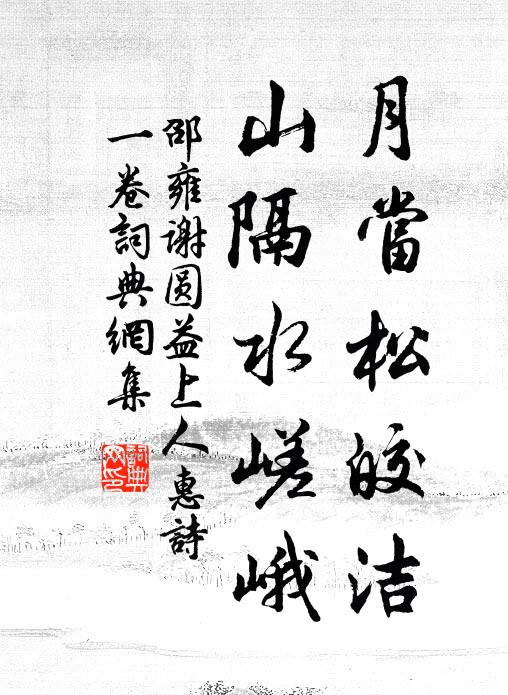 月當松皎洁
山隔水嵯峨
邵雍谢圆益上人惠詩
一卷詞典網集
詞典網印